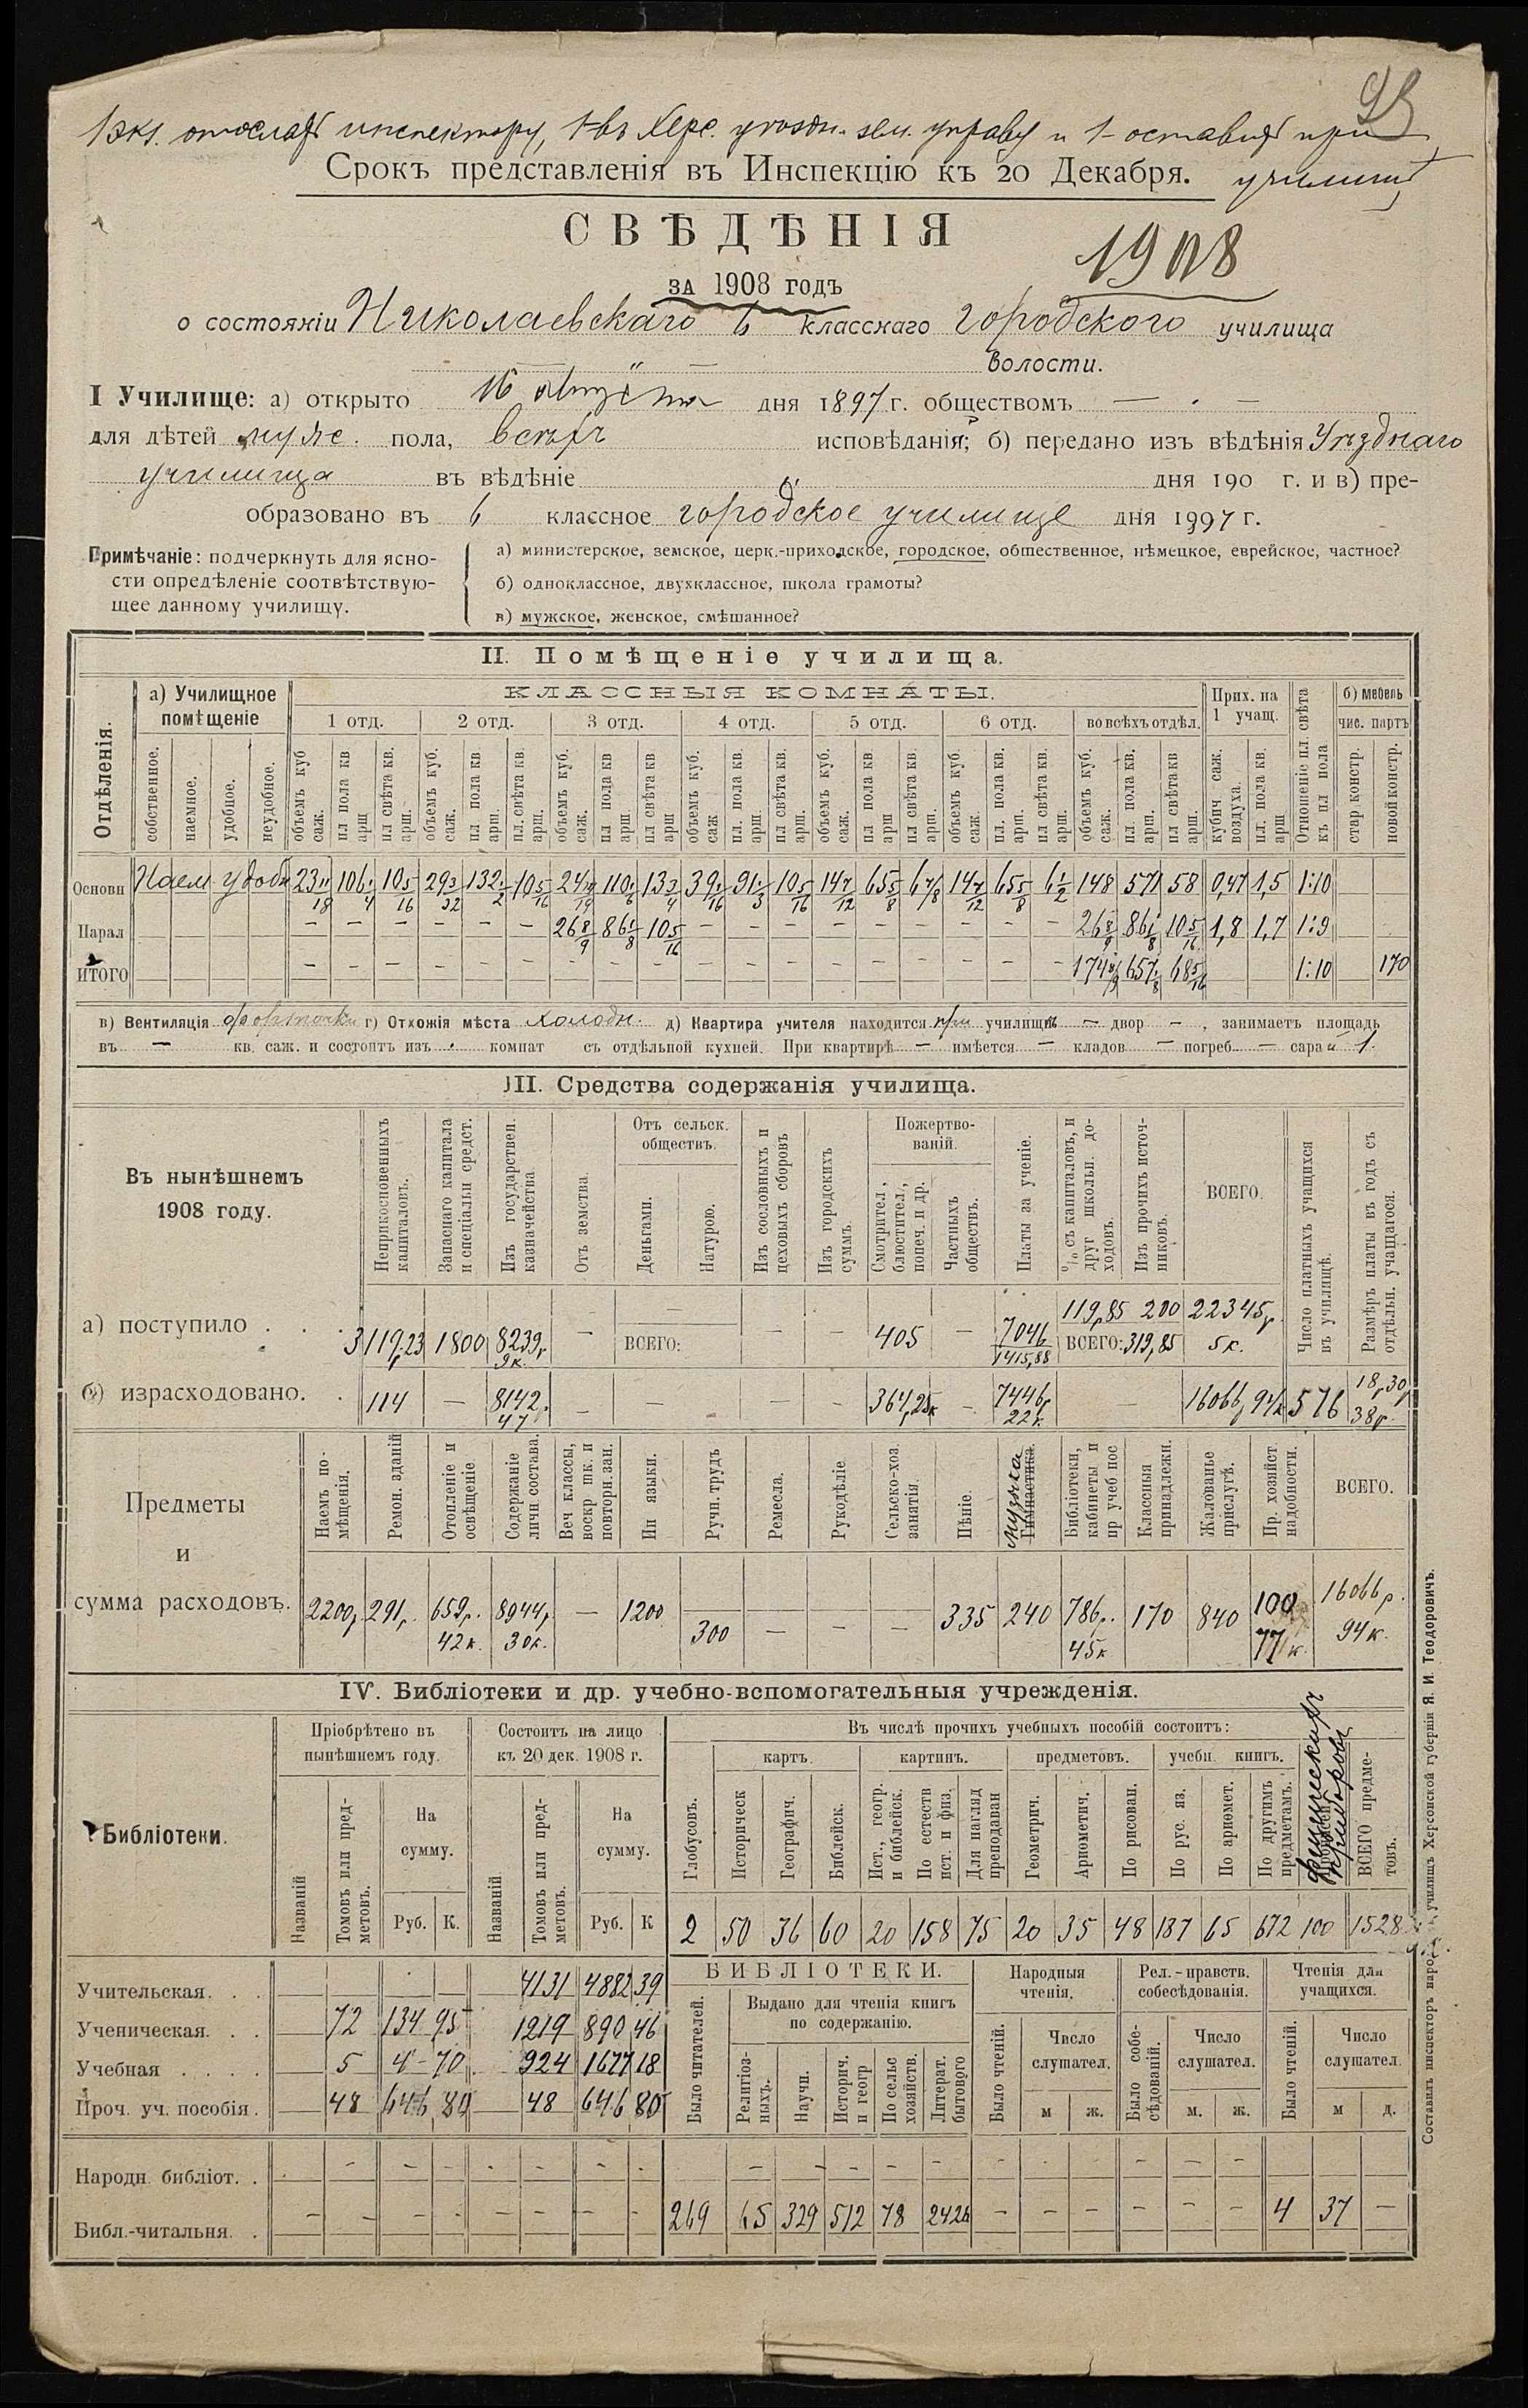 1 экз. отослать инспектору, 1-въ Херс. уѣздн. зем. управу и 1-оставить при
училищѣ
Срокъ представленія въ Инспекцію къ 20 Декабря.
СВѢДѢНІЯ
1908
за 1908 годъ
о состояніи Николаевскаго 6 класснаго городского училища
волости.
I Училище: а) открыто 16 августа дня 1897 г. обществомъ — . —
для дѣтей муж. пола, всѣхъ исповѣданія; б) передано изъ вѣдѣнія Уѣзднаго
училища въ вѣдѣніе дня 190 г. и в) пре-
образовано въ 6 классное городское училище дня 1997 г.
Примѣчаніе: подчеркнуть для ясно-
сти опредѣленіе соотвѣтствую-
щее данному училищу.
а) министерское, земское, церк.-приходское, городское, общественное, нѣмецкое, еврейское, частное?
б) одноклассное, двухклассное, школа грамоты?
в) мужское, женское, смѣшанное?
II. Помѣщеніе училища.
Отдѣленія.
а) Училищное помѣщеніе
КЛАССНЫЯ КОМНАТЫ.
Прих. на 1 учащ.
Отношеніе пл. свѣта къ пл пола
б) мебель
1 отд. 2 отд. 3 отд. 4 отд. 5 отд. 6 отд. во всѣхъ отдѣл.
чис. партъ
собственное. наемное. удобное. неудобное.
объемъ куб саж. пл пола кв арш пл свѣта кв. арш.
объемъ куб. саж. пл пола кв арш. пл. свѣта кв. арш.
объемъ куб. саж. пл пола кв арш пл свѣта кв арш
объемъ куб. саж пл. пола кв. арш. пл свѣта кв. арш.
объемъ куб. саж. пл пола кв арш пл свѣта кв. арш.
объемъ куб. саж пл. пола кв. арш. пл свѣта кв. арш.
объемъ куб. саж. пл. пола кв. арш. пл свѣта кв арш.
кубич саж. воздуха. пл. пола кв. арш
стар констр. новой констр.
Основн Наем удобн 23 11/18 106 1/4 10 5/16 29 3/32 132 1/2 10 5/16 110 1/8 13 3/4 39 1/16 91 1/3 10 5/16 14 7/12 65 5/8 6 7/8 14 7/12 65 5/8 6 1/2 148 571 58 0,47 1,5 1:10
Парал — — — — — — 26 8/9 86 1/8 10 5/16 — — — — — — — — — 26 8/9 86 1/8 10 5/16 1,8 1,7 1:9
ИТОГО — — — — — — — — — — — — — — — — — — 657 1/8 68 5/16 1:10 170
в) Вентиляція форточки г) Отхожія мѣста холодн. д) Квартира учителя находится при училищѣ — двор — , занимаетъ площадь
въ — кв. саж. и состоитъ изъ . комнат съ отдѣльной кухней. При квартирѣ — имѣется — кладов — погреб — сарай 1.
III. Средства содержанія училища.
Въ нынѣшнемъ
1908 году.
Неприкосновенныхъ капиталовъ.
Запаснаго капитала и спеціальн средст.
Изъ государствен. казначейства
Отъ земства.
Отъ сельск. обществъ.
Деньгами.
Натурою.
Изъ сословныхъ и цеховыхъ сборовъ
Изъ городскихъ суммъ.
Пожертво-ваній.
Смотрител, блюстител., попеч. и др.
Частныхъ обществъ.
Платы за ученіе.
% съ капиталовъ, и друг школьн. до-ходовъ.
Изъ прочихъ источ-никовъ.
ВСЕГО.
Число платныхъ учащихся въ училищѣ.
Размѣръ платы въ годъ съ отдѣльн. учащагося.
119р,85 200 22345р.
а) поступило . . . 3119р.23 1800 8239р 9к. — — ВСЕГО: — — 405 — 7046 1415,88 ВСЕГО: 319,85 5к.
б) израсходовано. . 114 — 8142. 47 — — — — — 364р,25к — 7446р 22к. — 16066р 94к 576 18р,30р 38р.
Предметы
и
сумма расходовъ.
Наемъ по-мѣщенія.
Ремон. зданій
Отопленіе и освѣщеніе
Содержаніе личн состава.
Веч классы, воскр шк. и повторн. зан.
Ин языки.
Ручн. трудъ
Ремесла.
Рукодѣліе
Сельско-хоз. занятія.
Пѣніе.
Гимнастика. музыка
Библіотеки, кабинеты и пр учеб пос
Классныя принадлежн.
Жалованье прислугѣ.
Пр. хозяйст надобности.
ВСЕГО.
2200р 291р. 659р. 42к. 8944р 30к. — 1200 300 — — — 335 240 786р. 45к 170 840 100 77к. 16066р. 94к.
IV. Библіотеки и др. учебно-вспомогательныя учрежденія.
Библіотеки.
Пріобрѣтено въ нынѣшнемъ году.
Состоитъ на лицо къ 20 дек. 1908 г.
Въ числѣ прочихъ учебныхъ пособій состоитъ:
картъ. картинъ. предметовъ. учебн. книгъ.
Названій
Томовъ или пред-метовъ.
На сумму.
Руб. К.
Названій
Томовъ или пред-метовъ.
На сумму.
Руб. К
Глобусовъ.
Историческ
Географич.
Библейск.
Ист., геогр. и библейск.
По естеств ист. и физ.
Для нагляд преподаван
Геометрич.
Ариѳметич.
По рисован.
По рус. яз.
По ариѳмет.
По другимъ предметамъ.
Физическихъ приборовъ
ВСЕГО предме-товъ.
2 50 36 60 20 158 75 20 35 48 187 65 672 100 1528
Учительская. . . 4131 4882 39
Ученическая. . . 72 134 95 1219 890 46
Учебная . . . . 5 4 - 70 924 1677 18
Проч. уч. пособія . 48 646 80 48 646 80
БИБЛІОТЕКИ.
Было читателей.
Выдано для чтенія книгъ по содержанію.
Религіоз-ныхъ.
Научн.
Историч. и геогр
По сельс хозяйств.
Литерат. бытового
Народныя чтенія.
Было чтеній.
Число слушател.
м ж.
Рел.-нравств. собесѣдованія.
Было собе-сѣдованій.
Число слушател.
м. ж.
Чтенія для учащихся.
Было чтеній.
Число слушател.
м д.
Народн. библіот. . . — — — . — — — — — — — — — — — — — —
Библ.-читальня. . — — — — — — — — 269 65 329 512 78 2426 — — — — — — 4 37 —
Составлъ инспекторъ народн. училищъ Херсонской губерніи Я. И. Теодоровичъ.